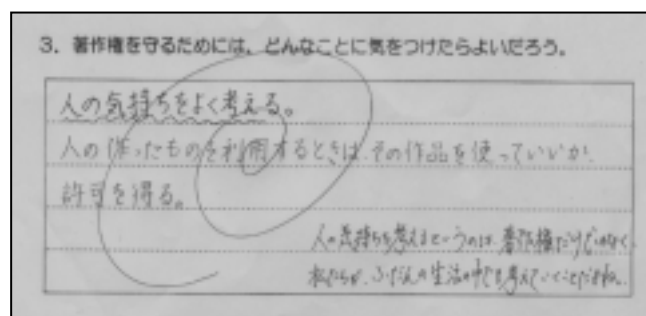 3．著作権を守るためには、どんなことに気をつけたらよいだろう。
人の気持ちをよく考える。
人の作ったものを利用するときは、その作品を使っていいか、
許可を得る。
人の気持ちを考えるというのは、著作権だけでなく、
私たちが、ふだんの生活の中でも考えていくことだよね。